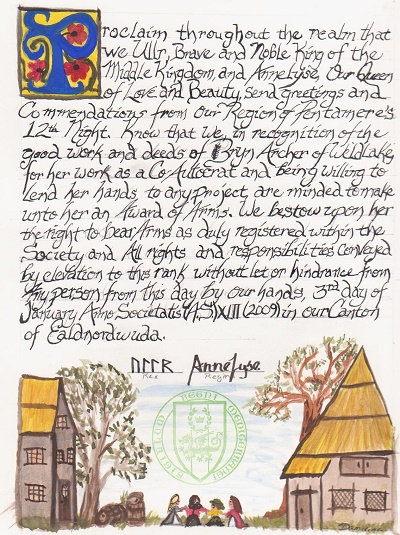 Proclaim throughout the realm that
we Ullr, Brave and Noble King of the
Middle Kingdom, and Annelyse, Our Queen
of Love and Beauty, send greetings and
Commendations from Our Region of Pentamere's
12th Night. Know that we, in recognition of the
good work and deeds of Bryn Archer of Weldlake,
for her work as a Co Autocrat and being willing to
lend her hands to any project, are minded to make
unto her an Award of Arms. We bestow upon her
the right to bear Arms as duly registered within the
Society and All rights and responsibilities conveyed
by elevation to this rank without let or hindrance from
Any person from this day by our hands, 3rd day of
January Anno Societatis (A.S.) (2009) in our Canton
of Ealdnordwuda.
ULLR Annelyse
Rex Regina